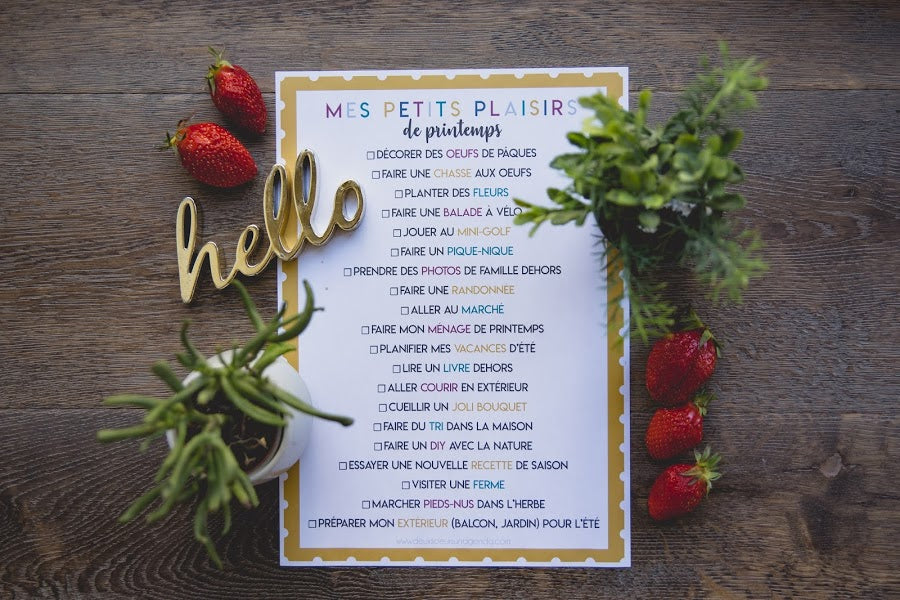 hello
MES PETITS PLAISIRS
de printemps
☐ DÉCORER DES OEUFS DE PÂQUES
☐ FAIRE UNE CHASSE AUX OEUFS
☐ PLANTER DES FLEURS
☐ FAIRE UNE BALADE À VÉLO
☐ JOUER AU MINI-GOLF
☐ FAIRE UN PIQUE-NIQUE
☐ PRENDRE DES PHOTOS DE FAMILLE DEHORS
☐ FAIRE UNE RANDONNÉE
☐ ALLER AU MARCHÉ
☐ FAIRE MON MÉNAGE DE PRINTEMPS
☐ PLANIFIER MES VACANCES D'ÉTÉ
☐ LIRE UN LIVRE DEHORS
☐ ALLER COURIR EN EXTÉRIEUR
☐ CUEILLIR UN JOLI BOUQUET
☐ FAIRE DU TRI DANS LA MAISON
☐ FAIRE UN DIY AVEC LA NATURE
☐ ESSAYER UNE NOUVELLE RECETTE DE SAISON
☐ VISITER UNE FERME
☐ MARCHER PIEDS-NUS DANS L'HERBE
☐ PRÉPARER MON EXTÉRIEUR (BALCON, JARDIN) POUR L'ÉTÉ